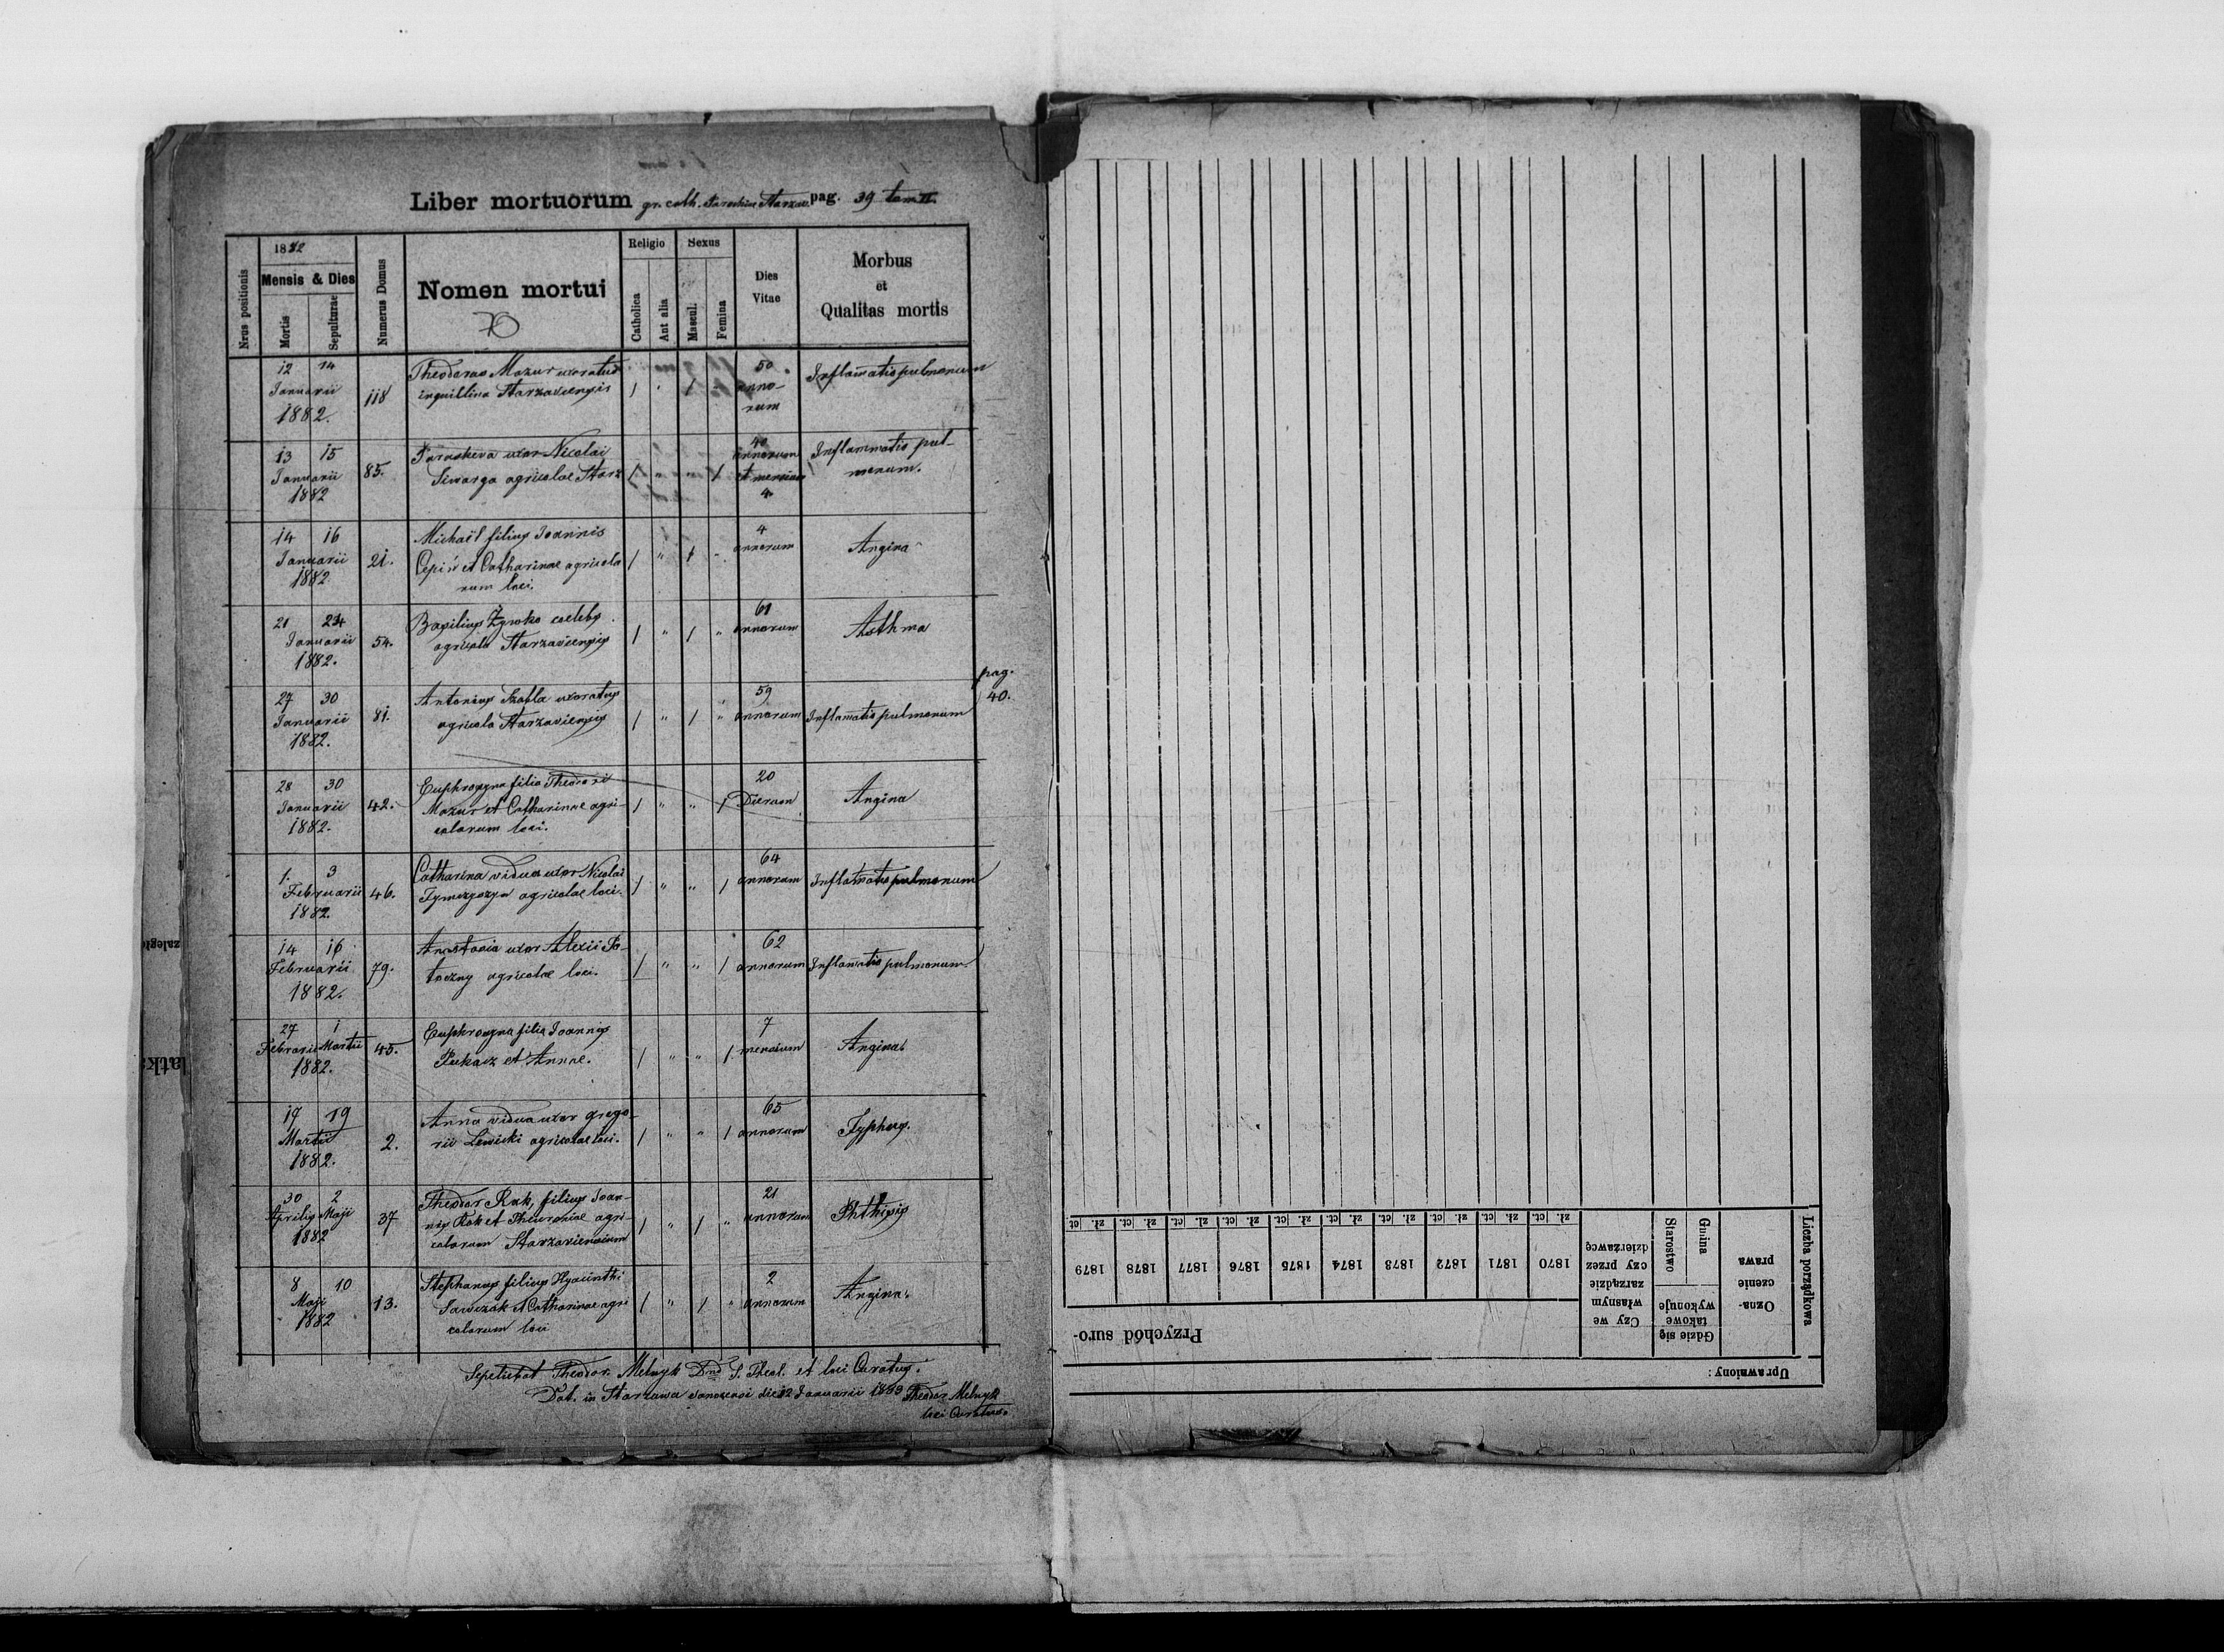 Liber mortuorum gr. cath. Parochiae Starzav. pag. 39 tom II.
Nrus positionis
1882
Mensis & Dies
Mortis
Sepulturae
Numerus Domus
Nomen mortui
70
Religio
Catholica
Aut alia
Sexus
Mascul.
Femina
Dies
Vitae
Morbus
et
Qualitas mortis
12 14
Januarii
1882.
118
Theodorus Mazur uxoratus
inquillinus Starzaviensis
50
anno-
rum
Inflam̄atio pulmonum
13 15
Januarii
1882
85.
Paraskeva uxor Nicolai
agricolae Starz
40
annorum
et mensium
4
Inflammatio pul-
monum.
14 16
Januarii
1882
21.
Michaël filius Joannis
Cepiń et Catharinae agricola
rum loci.
4
annorum
Angina
21 24
Januarii
1882.
54.
Basilius Żywko coelebs
agricola Starzaviensis
61
annorum
Asthma
27 30
Januarii
1882.
81.
Antonius Szafla uxoratus
agricola Starzaviensis
59
annorum
Inflam̄atio pulmonum
pag.
40.
28 30
Januarii
1882.
42.
Euphrosyna filia Theodori
Mazur et Catharinae agri-
colarum loci.
20
Dierum
Angina
1. 3
Februarii
1882.
46.
Catharina vidua uxor Nicolai
Tymczyszyn agricolae loci.
64
annorum
Inflam̄atio pulmonum
14 16
Februarii
1882.
79.
Anastasia uxor Alexii Po-
toczny agricolae loci.
62
annorum
Inflam̄atio pulmonum
27 1
Februarii Martii
1882.
45.
Euphrosyna filia Joannis
Pukacz et Annae.
7
mensium
Angina.
17 19
Martii
1882.
2.
Anna vidua uxor Grego-
rii Lewicki agricolae loci.
65
annorum
Typhus.
30 2
Aprilis Maji
1882
37
Theodor Rak, filius Joan-
nis Rak et Theuroniae agri-
colarum Starzaviensium
21
annorum
Phthisis
8 10
Maji
1882
13.
Stephanus filius Hyacinthi
Sawczak et Catharinae agri
colarum loci
2
annorum
Angina.
Sepeliebat Theodor. Melnyk S. Theol. et loci Curatus.
Dat. in Starzawa sanocensi die 12 Januarii 1883 Theodor Melnyk
loci Curatus.
Uprawniony:
Przychód suro-
Liczba porządkowa
Ozna-
czenie
prawa
Gdzie się
takowe
wykonuje
Gmina
Starostwo
Czy we
własnym
zarządzie
czy przez
dzierżawcę
1870 1871 1872 1873 1874 1875 1876 1877 1878 1879
zł. ct. zł. ct. zł. ct. zł. ct. zł. ct. zł. ct. zł. ct. zł. ct. zł. ct. zł. ct.